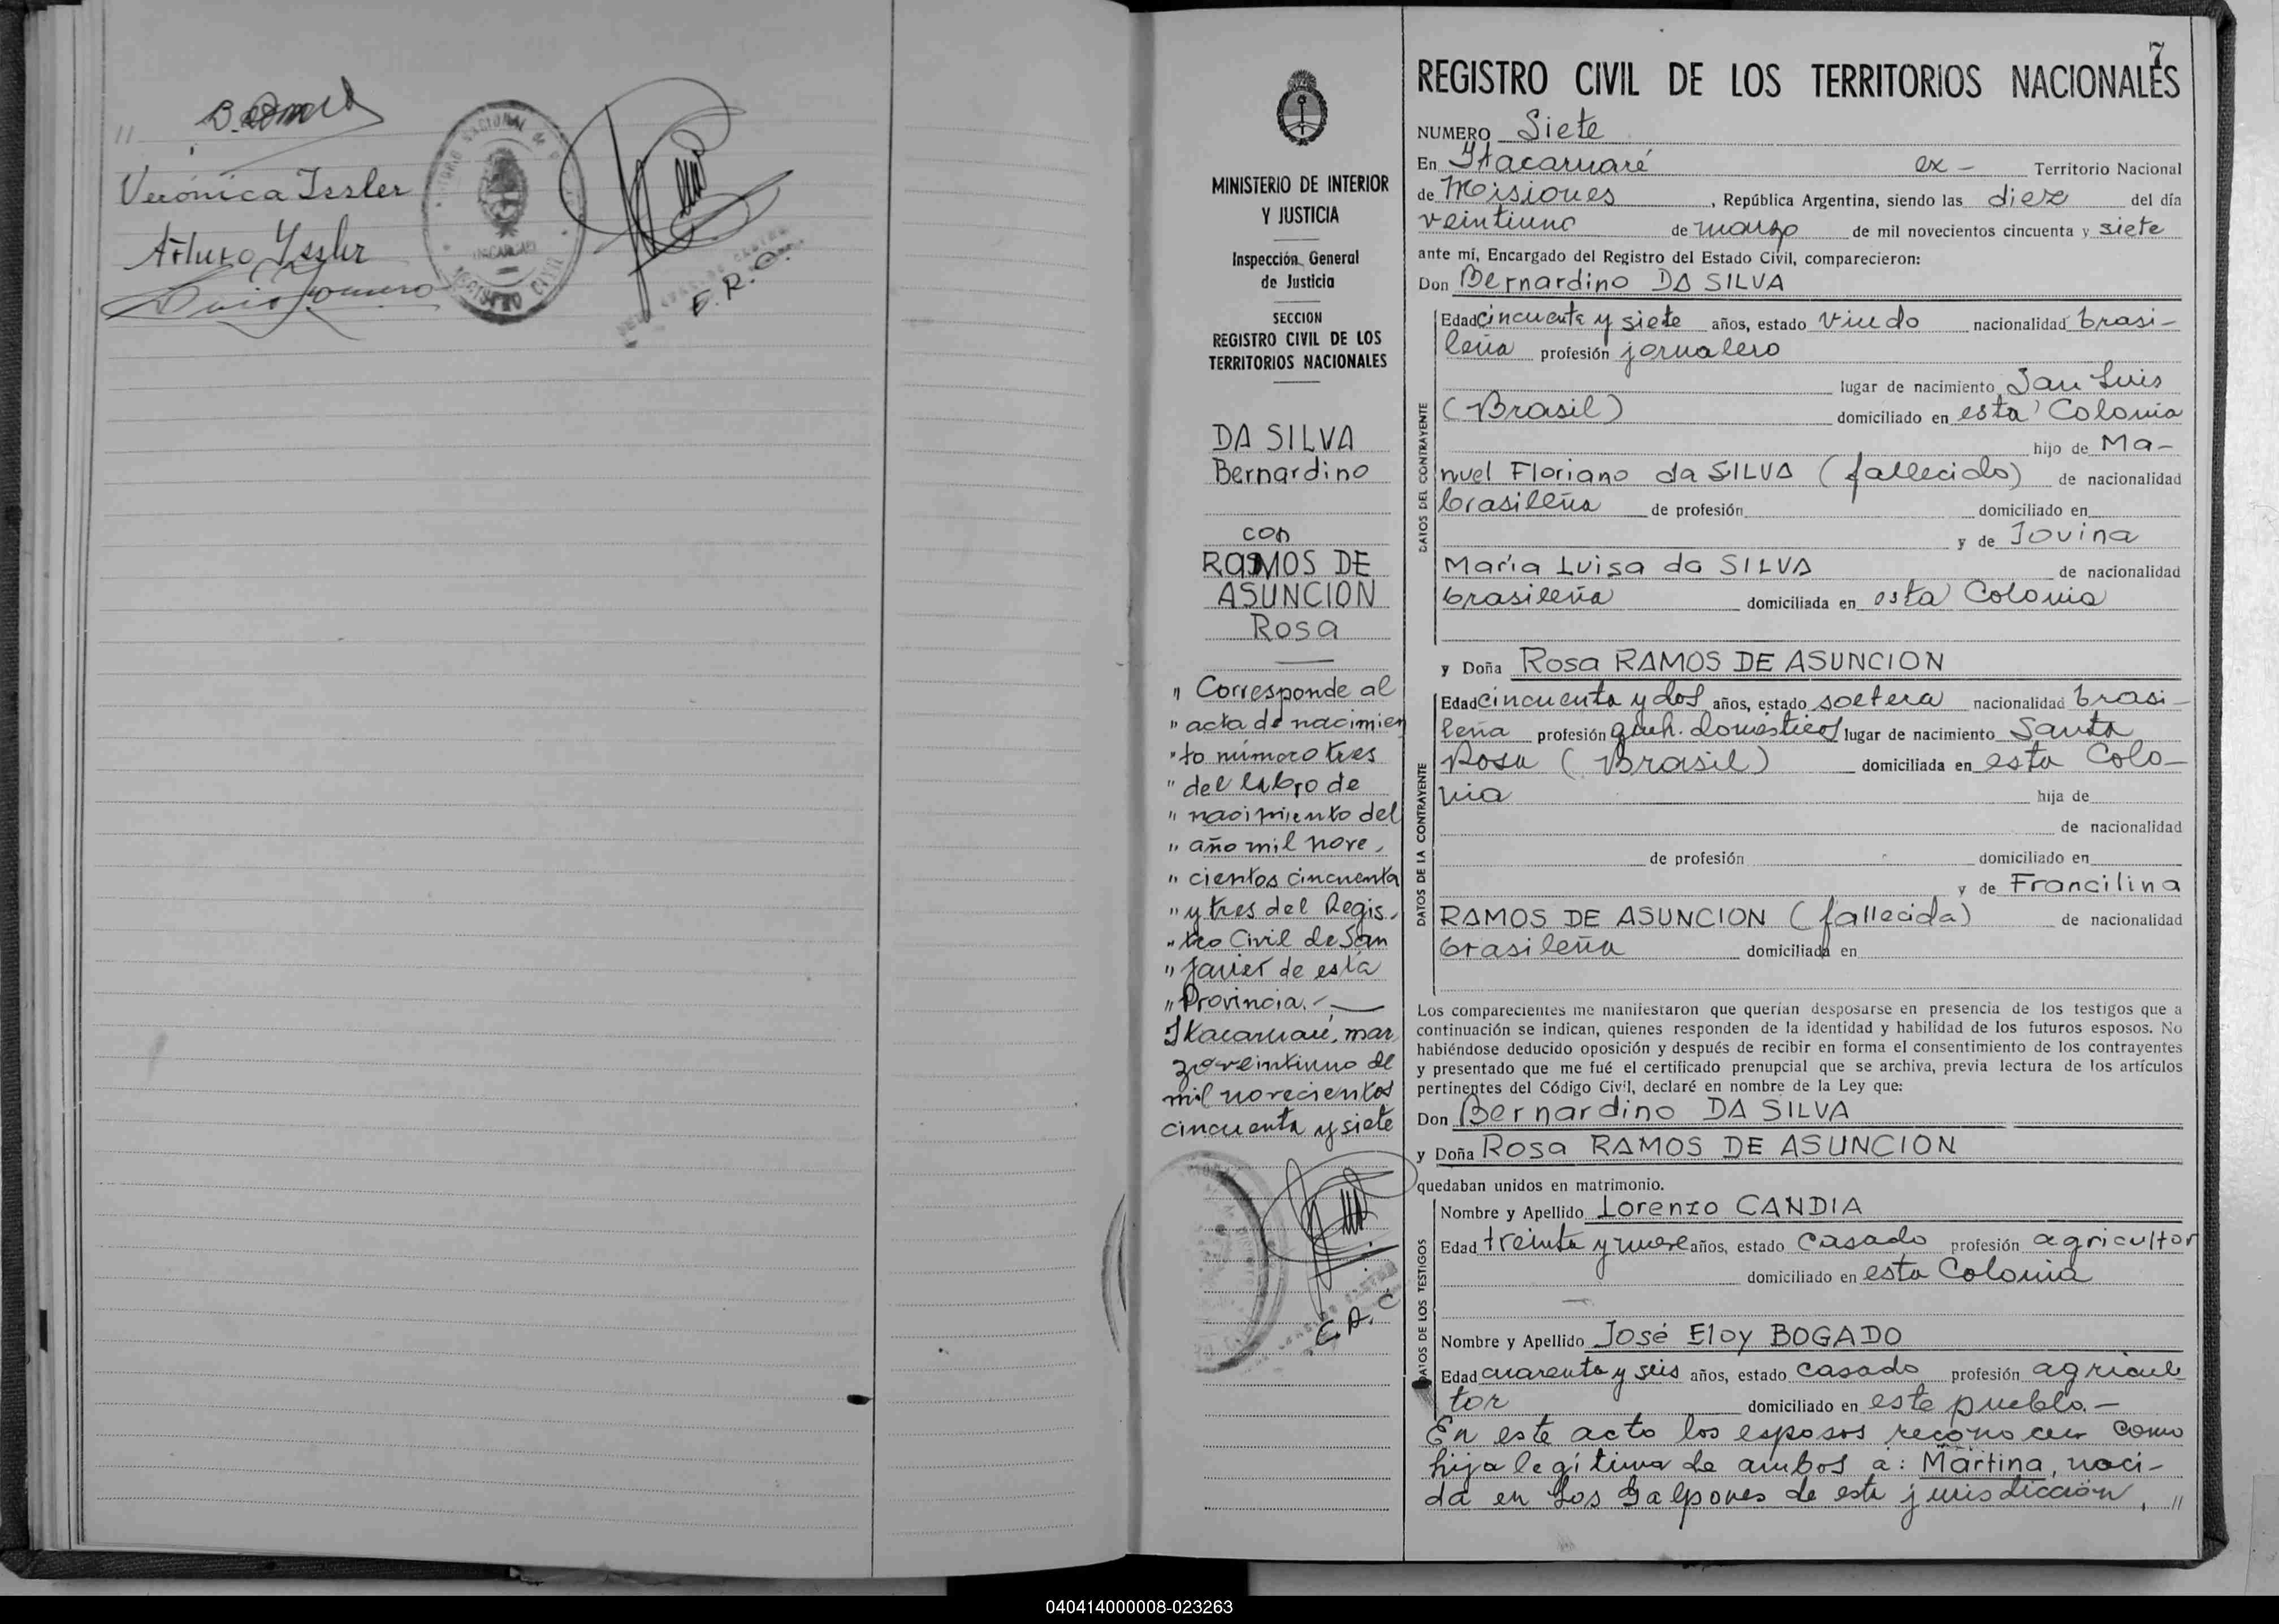 Verónica Issler
Arturo Yssler
REGISTRO CIVIL
E. R. C.
7
REGISTRO CIVIL DE LOS TERRITORIOS NACIONALES
MINISTERIO DE INTERIOR
Y JUSTICIA
Inspección General
de Justicia
SECCION
REGISTRO CIVIL DE LOS
TERRITORIOS NACIONALES
DA SILVA
Bernardino
con
RAMOS DE
ASUNCION
Rosa
" Corresponde al
" acta de nacimien
" to número tres
" del libro de
" nacimiento del
" año mil nove
" cientos cincuenta
" y tres del Regis
" tro Civil de San
" Javier de esta
" Provincia. —
Itacaruaré, mar
zo veintiuno de
mil novecientos
cincuenta y siete
NUMERO Siete
En Itacaruaré ex - Territorio Nacional
de Misiones, República Argentina, siendo las diez del día
veintiuno de marzo de mil novecientos cincuenta y siete
ante mí, Encargado del Registro del Estado Civil, comparecieron:
Don Bernardino DA SILVA
DATOS DEL CONTRAYENTE
Edad cincuenta y siete años, estado viudo nacionalidad brasi-
leña profesión jornalero
lugar de nacimiento San Luis
(Brasil) domiciliado en esta Colonia
hijo de Ma-
nuel Floriano da SILVA (fallecido) de nacionalidad
brasileña de profesión domiciliado en
y de Jovina
María Luisa da SILVA de nacionalidad
brasileña domiciliada en esta Colonia
y Doña Rosa RAMOS DE ASUNCION
DATOS DE LA CONTRAYENTE
Edad cincuenta y dos años, estado soltera nacionalidad brasi-
leña profesión queh. domésticos lugar de nacimiento Santa
Rosa (Brasil) domiciliada en esta Colo-
nia hija de
de nacionalidad
de profesión domiciliado en
y de Francilina
RAMOS DE ASUNCION (fallecida) de nacionalidad
brasileña domiciliada en
Los comparecientes me manifestaron que querían desposarse en presencia de los testigos que a
continuación se indican, quienes responden de la identidad y habilidad de los futuros esposos. No
habiéndose deducido oposición y después de recibir en forma el consentimiento de los contrayentes
y presentado que me fué el certificado prenupcial que se archiva, previa lectura de los artículos
pertinentes del Código Civil, declaré en nombre de la Ley que:
Don Bernardino DA SILVA
y Doña Rosa RAMOS DE ASUNCION
quedaban unidos en matrimonio.
DATOS DE LOS TESTIGOS
Nombre y Apellido Lorenzo CANDIA
Edad treinta y nueve años, estado casado profesión agricultor
domiciliado en esta Colonia
Nombre y Apellido José Eloy BOGADO
Edad cuarenta y seis años, estado casado profesión agricul
tor domiciliado en este pueblo.-
En este acto los esposos reconocen como
hija legítima de ambos a: Martina, naci-
da en Los Galpones de esta jurisdicción, //
E. R. C
040414000008-023263